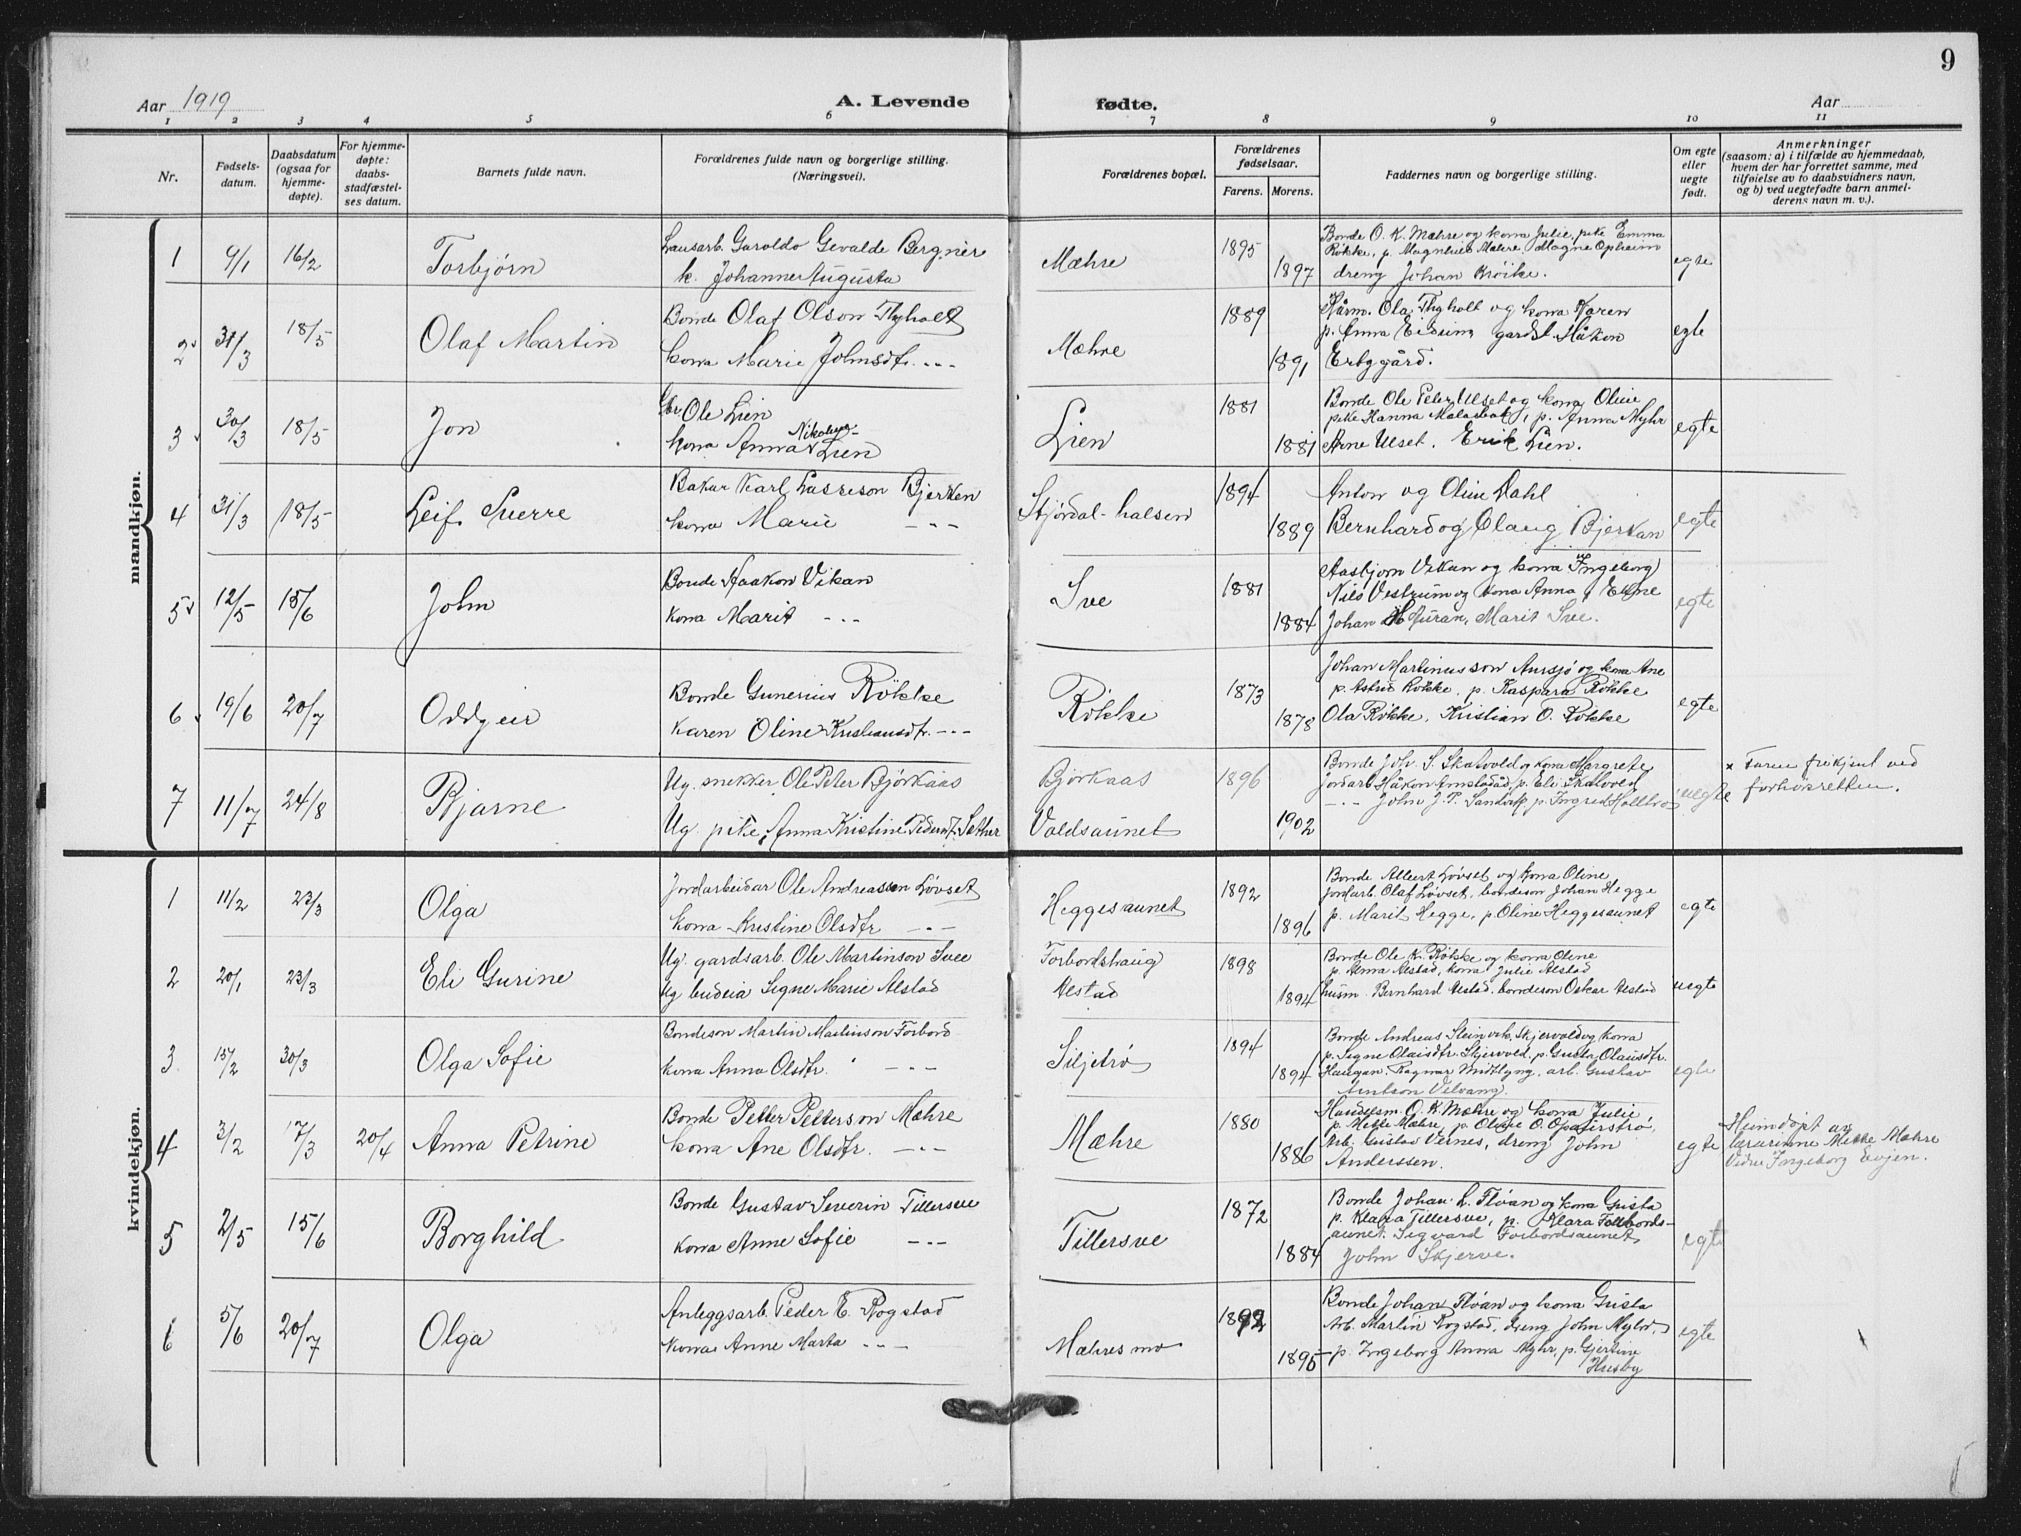 9
Aar 1919
A. Levende fødte.
Aar
1 2 3 4 5 6 7 8 9 10 11
Nr.
Fødsels-
datum.
Daabsdatum
(ogsaa for
hjemme-
døpte).
For hjemme-
døpte:
daabs-
stadfæstel-
ses datum.
Barnets fulde navn.
Forældrenes fulde navn og borgerlige stilling.
(Næringsvei).
Forældrenes bopæl.
Forældrenes
fødselsaar.
Farens. Morens.
Faddernes navn og borgerlige stilling.
Om egte
eller
uegte
født.
Anmerkninger
(saasom: a) i tilfælde av hjemmedaab,
hvem der har forrettet samme, med
tilføielse av to daabsvidners navn,
og b) ved uegtefødte barn anmel-
derens navn m. v.).
mandkjøn.
1 9/1 16/2 Torbjørn
Gevalde Bergner
k. Johanne Augusta
Mæhre 1895 1897
Bonde O. K. Mæhre og kona Julie, pike Emma
Rökke, p. Magnhild Mæhre, Magne Opheim
dreng Johan
egte
2 31/3 18/5 Olaf Martin
Bonde Olaf Olson Thyholt
kona Marie Johnsdtr. - - -
Mæhre 1889 1891
Ola Thyholt og kona Karen
p. Anna gardbr. Håkon
egte
3 30/3 18/5 Jon
Gbr Ole Lien
kona Anna Nikolina Lien
Lien 1881 1881
Bonde Ole Peter Ulset og kona Oline
pike Hanna p. Anna Myhr
Arne Ulset. Erik Lien.
egte
4 31/3 18/5 Leif Sverre
Bakar Karl Lasseson Bjerken
kona Marie - - -
Stjørdal-halsen 1894 1889
Anton og Oline Dahl
Bernhard og Olaug Bjerkan
egte
5 12/5 15/6 John
Bonde Haakon Vikan
kona Marit - - -
Sve 1881 1884
Aasbjørn Vikan og kona Ingeborg
Nils Vestrum og kona Anna, Ekne
Johan Marit Sve.
egte
6 19/6 20/7 Oddgeir
Bonde Gunerius Rökke
Karen Oline Kristiansdtr. - - -
Rökke 1873 1878
Johan Martinusson Aurssjø og kona Ane
p. Astrid Rökke, p. Kaspara Rökke
Ola Rökke, Kristian O. Rökke
egte
7 11/7 24/8 Bjarne
Ug. snekker Ole Peter Björkaas
Ug. pike, Anna Kristine Pedersdtr. Sæther
Björkaas
Voldsaunet
1896 1902
Bonde Joh. S. Skatvold og kona Margrete
Jordarb. Håkon p. Eli Skatvold
- - - John J. P. p. Ingrid
uegte
x Faren frikjent ved
forhørsretten.
kvindekjøn.
1 11/2 23/3 Olga
Jordarbeidar Ole Andreassen Lövset
kona Kristine Olsdtr - - -
Heggesaunet 1892 1896
Bonde Albert Lövset og kona Oline
Jordarb. Olaf Lövset, bondeson Johan Hegge
p. Marit Hegge, p. Oline Heggesaunet
egte
2 20/1 23/3 Eli Gurine
Ug. gardsarb. Ole Martinson Svee
Ug budeia Signe Marie Alstad
Forbordshaug
Alstad
1898 1894
Bonde Ole K. Rökke og kona Oline
p. Anna Alstad, kona Julie Alstad
husm. Bernhard Alstad, bondeson Oskar Alstad
uegte
3 15/2 30/3 Olga Sofie
Bondeson Martin Martinson Forbord
kona Anna Olsdtr. - - -
Siljebrö 1894 1894
Bonde Andreas Steinvik, Skjervold og kona
p. Signe Olaisdtr. Skjervold, p. Gusta Olausdtr.
Haugan. Ragnar Midtlyng, arb. Gustav
Arntson Velvang.
egte
4 3/2 17/3 20/4 Anna Petrine
Bonde Petter Petterson Mæhre
kona Ane Olsdtr. - - -
Mæhre 1880 1886
Handelsm. O. K. Mæhre og kona Julie
p. Mette Mæhre, p. O.
Arb. Gustav Vernes, dreng John
Anderssen.
egte
Heimdöpt av
lærarinne Mette Mæhre
Vidne Ingeborg Evjen.
5 2/5 15/6 Borghild
Bonde Gustav Severin Tillersve
kona Anne Sofie - - -
Tillersve 1872 1884
Bonde Johan L. Flöan og kona Gusta
p. Klara Tillersve, p. Klara Forbords-
aunet. Sigvard Forbordsaunet,
John Skjerve.
egte
6 5/6 20/7 Olga
Anleggsarb. Peder E. Rogstad
kona Anne Marta - - -
Mæhresmo 1892 1895
Bonde Johan Flöan og kona Gusta
Arb. Martin Rogstad, dreng John Myhr,
p. Ingeborg Anna Myhr, p. Gjertine
Husby
egte